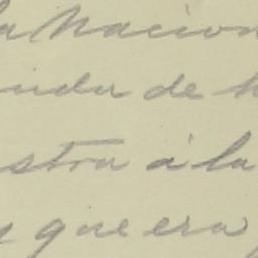 la Nacion
de
stra á la
que era